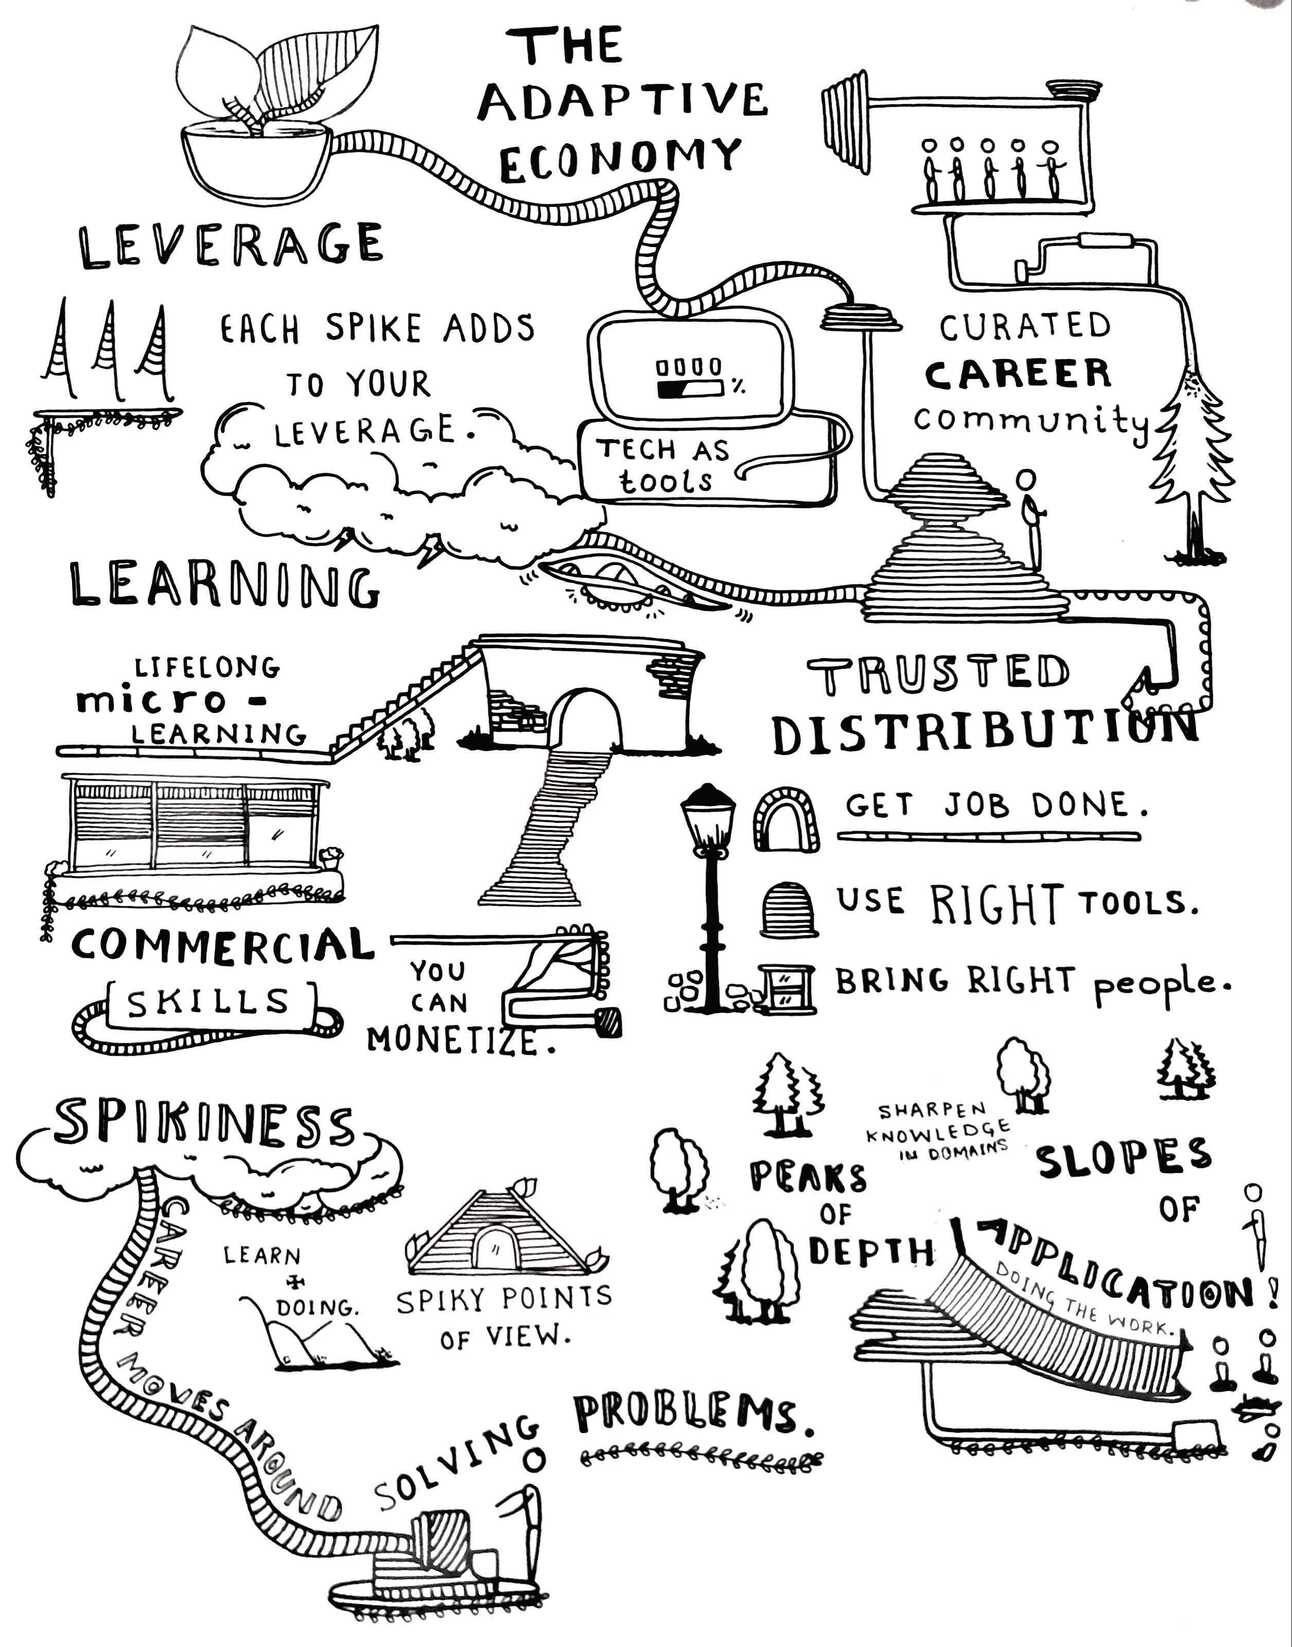 THE
ADAPTIVE
ECONOMY
LEVERAGE
EACH SPIKE ADDS
TO YOUR
LEVERAGE.
%
TECH AS
tools
CURATED
CAREER
community
LEARNING
LIFELONG
micro -
LEARNING
TRUSTED
DISTRIBUTION
GET JOB DONE.
USE RIGHT TOOLS.
BRING RIGHT people.
COMMERCIAL
SKILLS
YOU
CAN
MONETIZE.
SPIKINESS
CAREER MOVES AROUND
SOLVING
PROBLEMS.
LEARN
+
DOING.
SPIKY POINTS
OF VIEW.
SHARPEN
KNOWLEDGE
IN DOMAINS
PEAKS
OF
DEPTH
SLOPES
OF
APPLICATION!
DOING THE WORK.